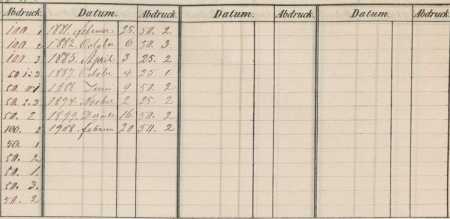 Abdruck. Datum. Abdruck. Datum. Abdruck. Datum. Abdruck.
100. 1 1881. Februar 25. 50. 2.
100. 2 1882. October 6 50. 3
100. 3 1883. April 3 25. 2
50. 1.2 1887. October 4 25. 1
50. 1888 Juni 9 50. 2
50. 2.3 1894. 2 25. 2
50. 2 1899. 16 50. 2
100. 2 1908. Februar 20 50. 2
50. 1
50. 2.
50. 1.
50. 3.
50. 2.